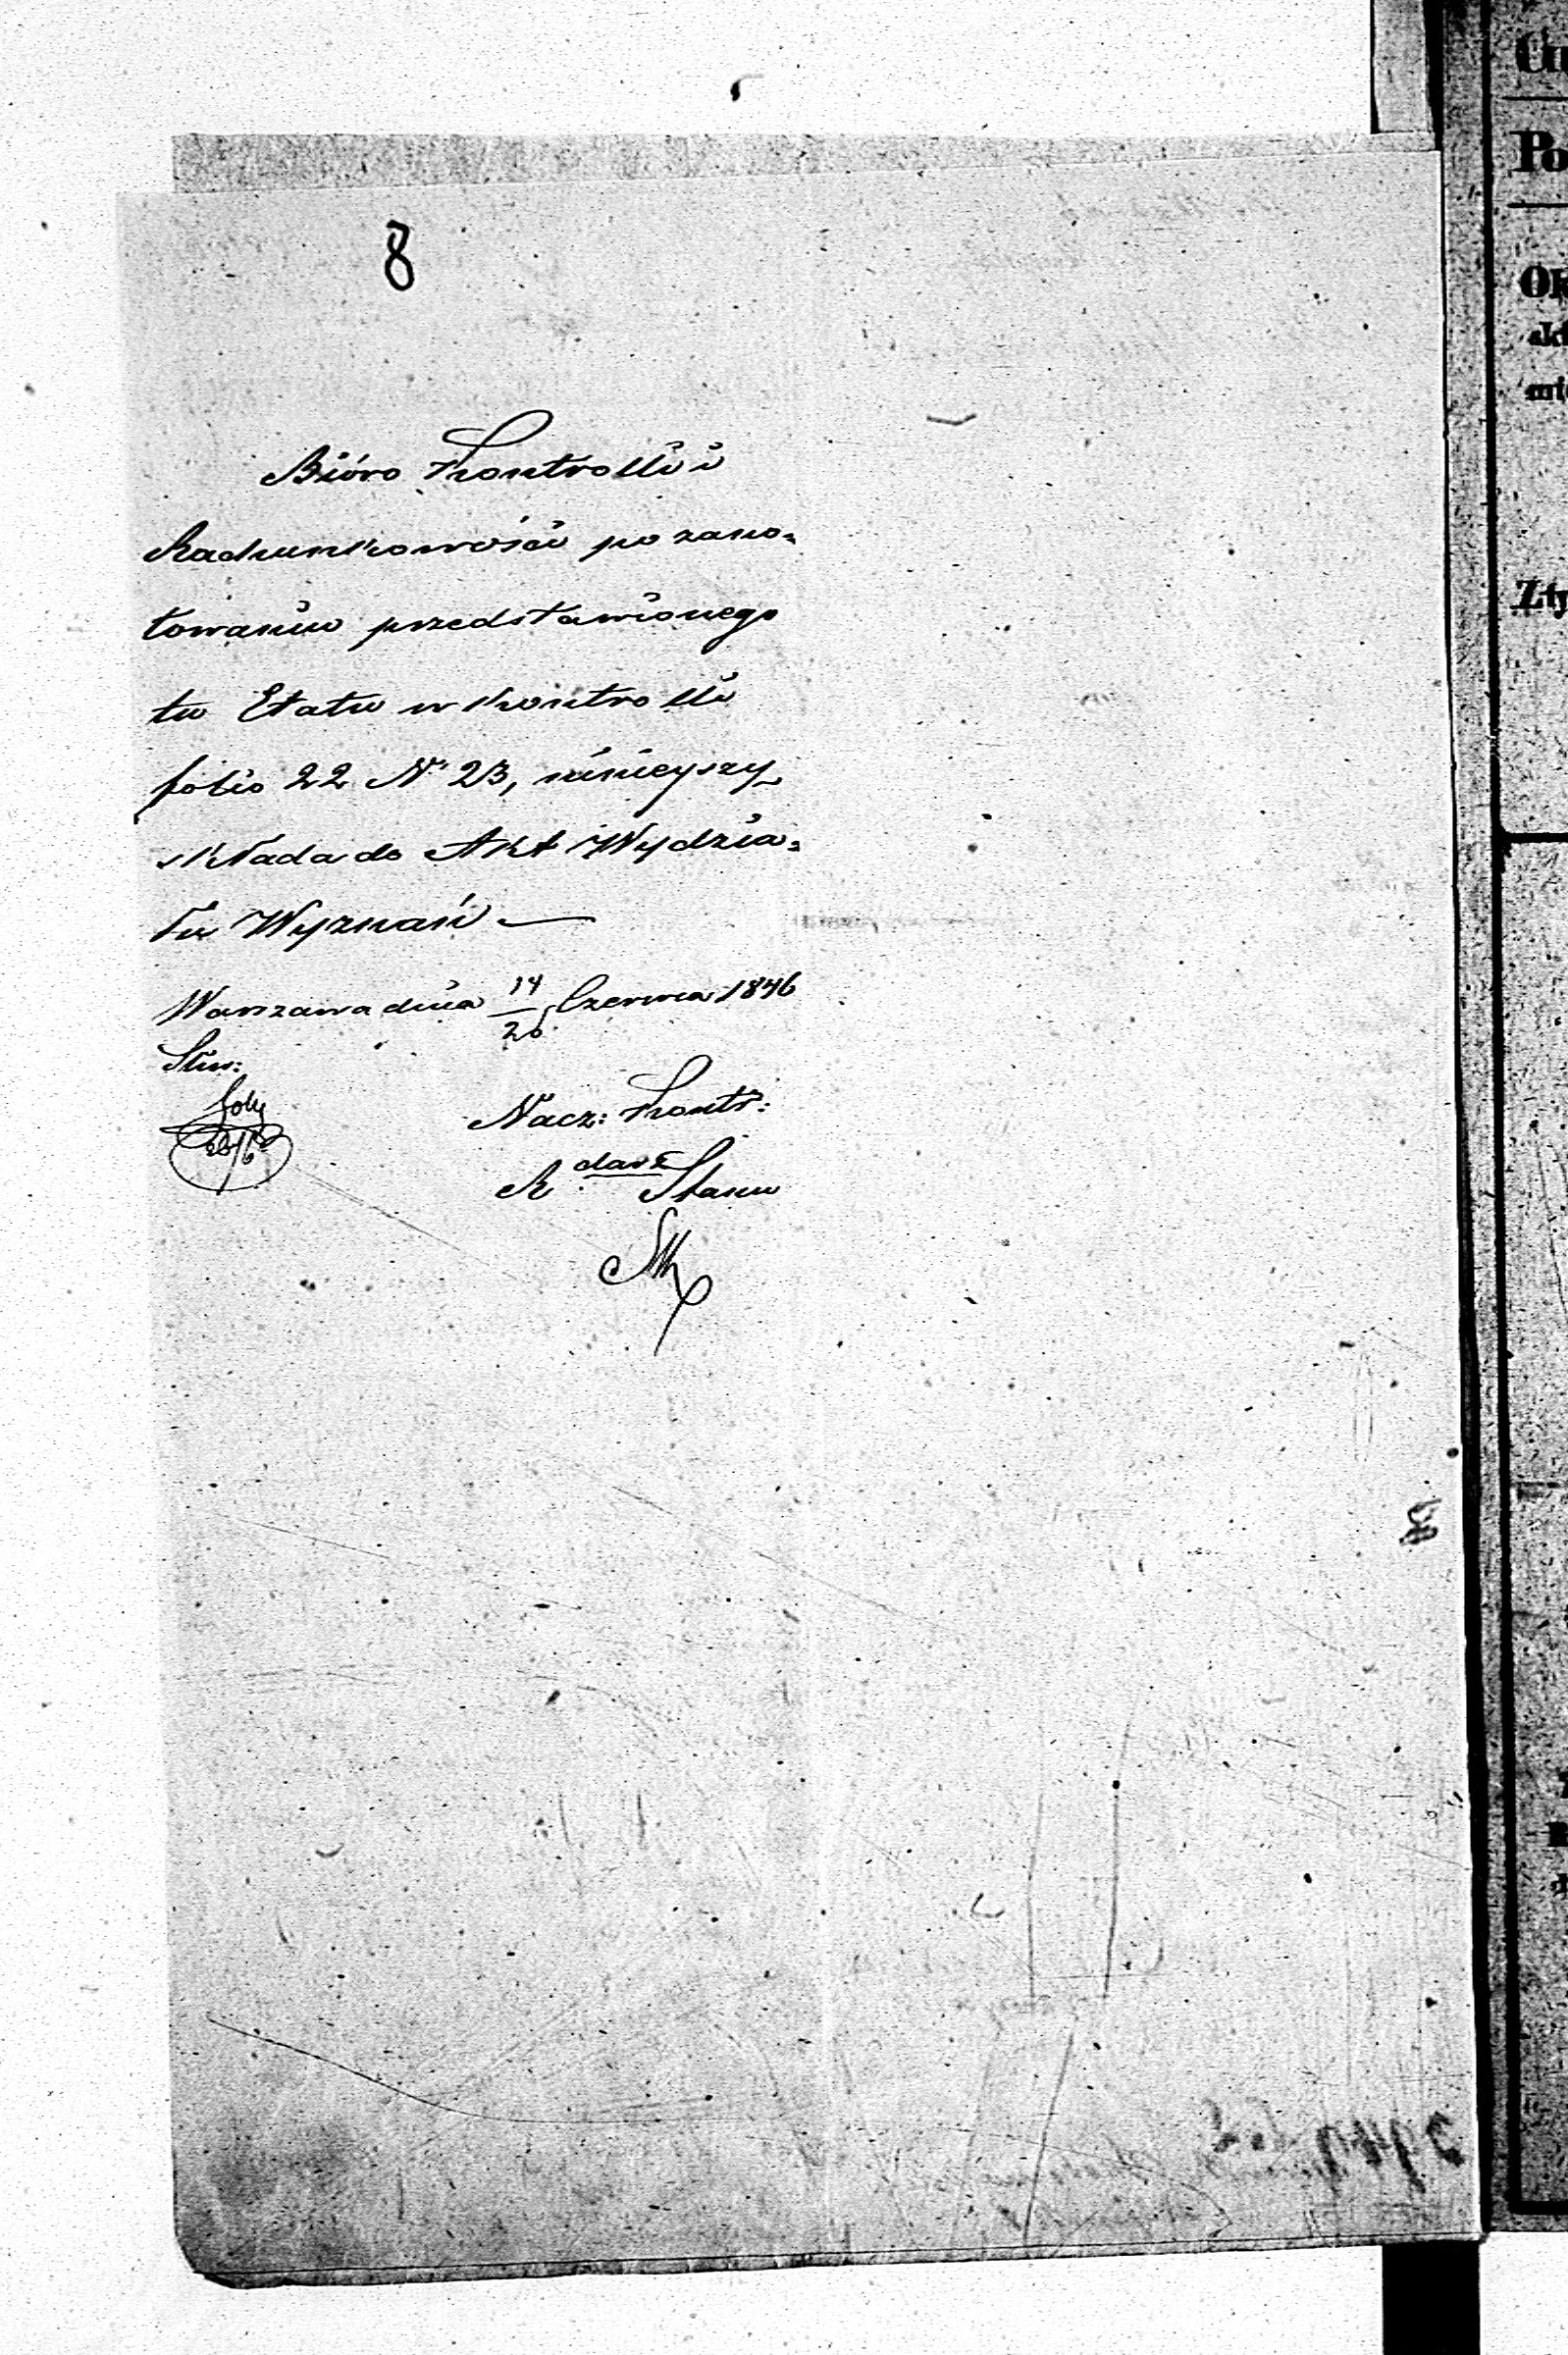 8
Bióro Kontrolli i
Rachunkowości po zano=
towaniu przedstawionego
tu Etatu w Kontrolli
folio 22 N° 23, ninieyszy
składa do Akt Wydzia=
łu Wyznań
Warszawa dnia 14/26 Czerwca 1846
Nacz: Kontr:
R dca Stanu
Cu
Po
Ok
akt
mie
Zty